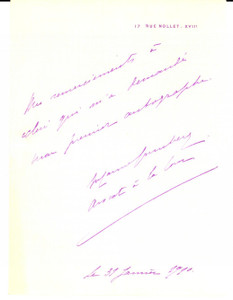 17 RUE NOLLET - XVIII
Mes remerciements à
celui qui m'a demandé
mon premier autographe.
Avocat à la Cour
Le 21 Janvier